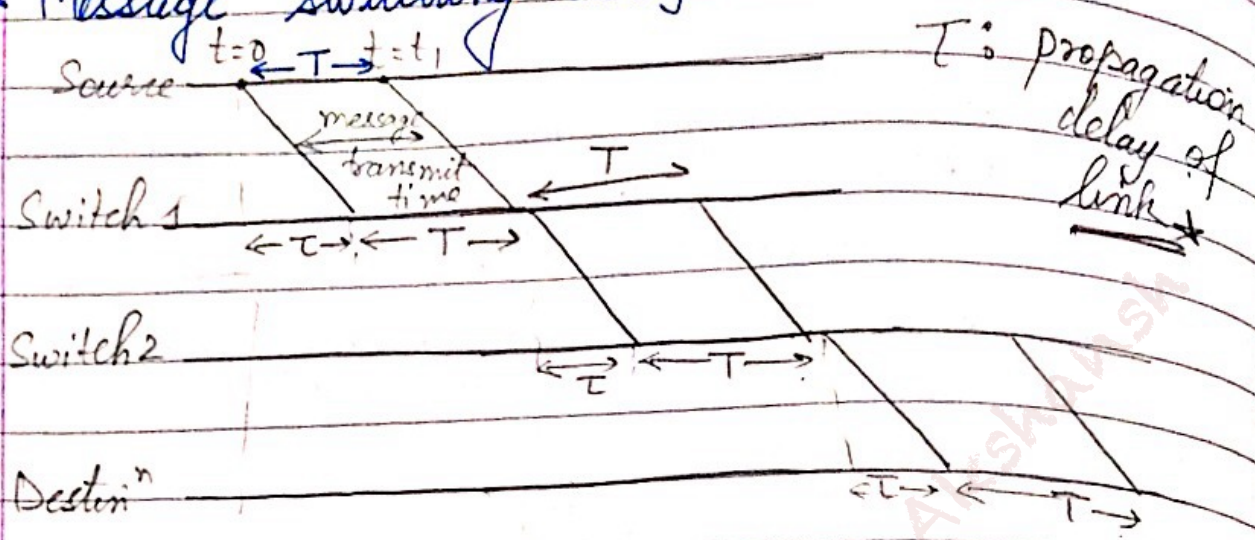 Message switching
t=0 ←T→ t=t₁
τ: propagation
delay of
link *
Source
message
transmit
time
T
Switch 1
←τ→ ←T→
Switch2
←τ→ ←T→
Destinⁿ
←τ→ ←T→
Akshansh